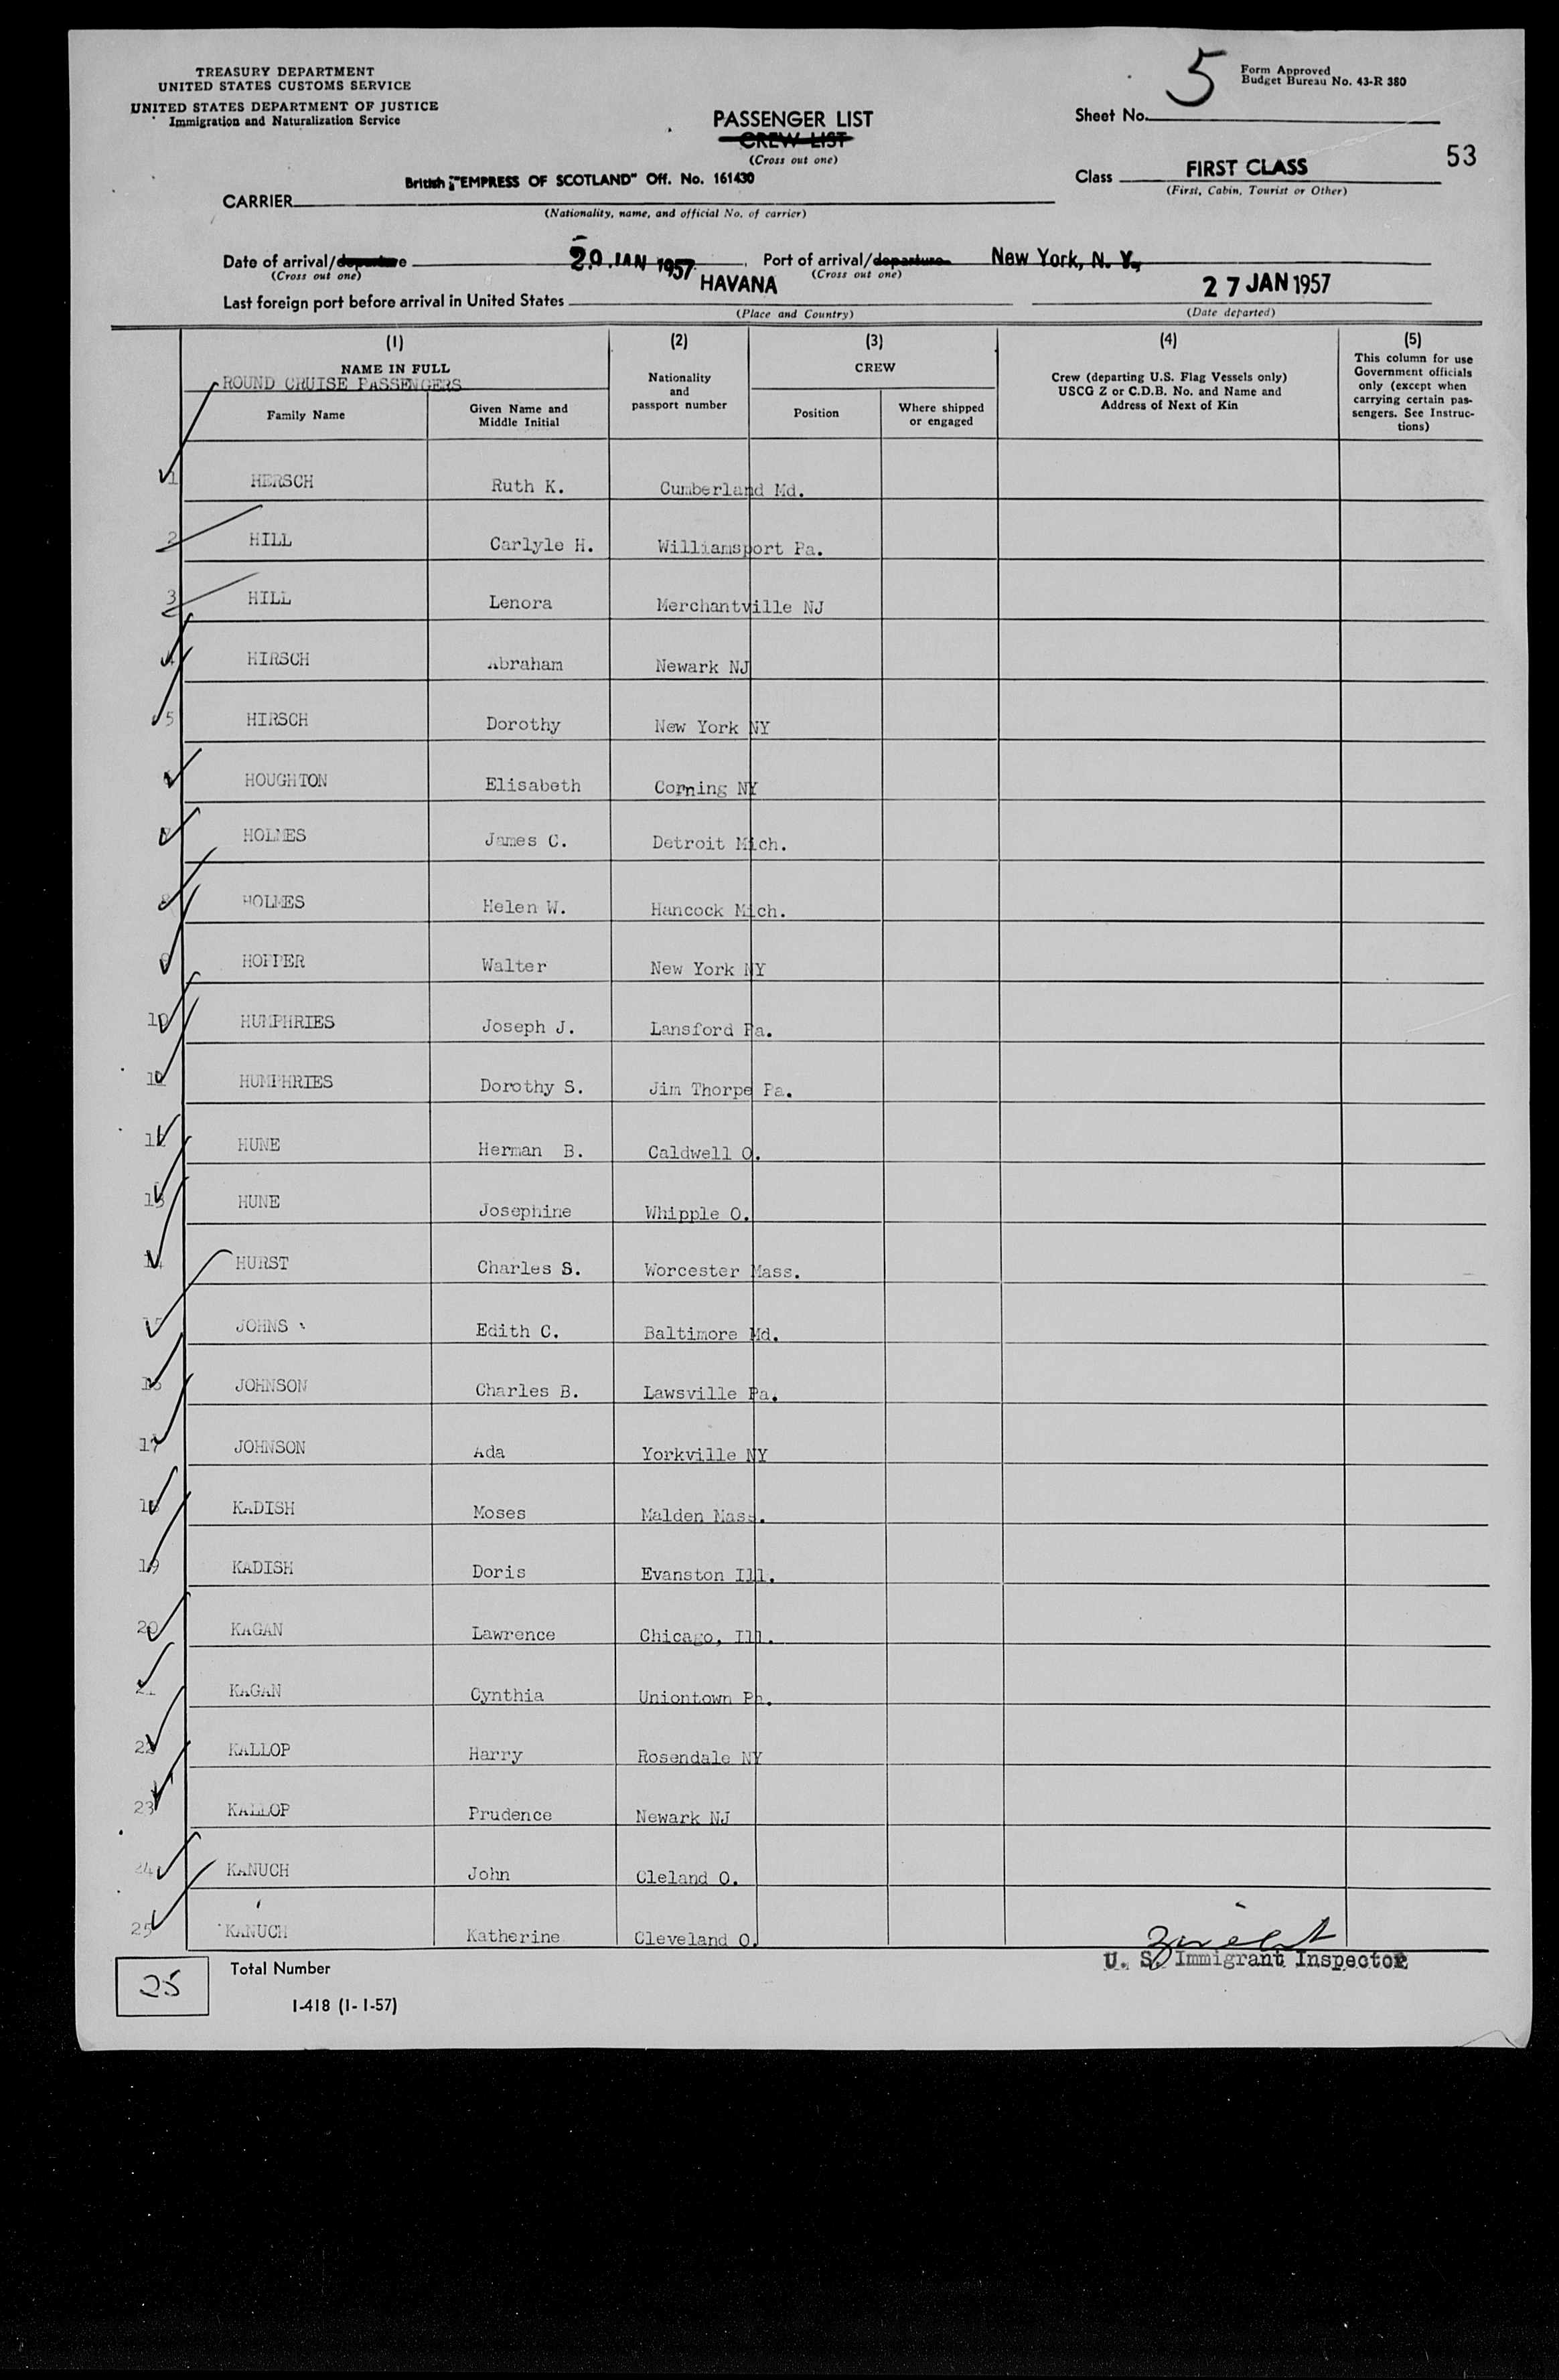 TREASURY DEPARTMENT
UNITED STATES CUSTOMS SERVICE
UNITED STATES DEPARTMENT OF JUSTICE
Immigration and Naturalization Service
PASSENGER LIST
CREW LIST
(Cross out one)
5
Form Approved
Budget Bureau No. 43-R 380
Sheet No.
53
Class FIRST CLASS
(First, Cabin, Tourist or Other)
CARRIER British "EMPRESS OF SCOTLAND" Off. No. 161430
(Nationality, name, and official No. of carrier)
Date of arrival/departure JAN 1957 Port of arrival/departure New York, N. Y.,
(Cross out one) (Cross out one)
Last foreign port before arrival in United States HAVANA 27 JAN 1957
(Place and Country) (Date departed)
(1) (2) (3) (4) (5)
NAME IN FULL
ROUND CRUISE PASSENGERS
Family Name
Given Name and Middle Initial
Nationality and passport number
CREW
Position
Where shipped or engaged
Crew (departing U.S. Flag Vessels only)
USCG Z or C.D.B. No. and Name and
Address of Next of Kin
This column for use
Government officials
only (except when
carrying certain pas-
sengers. See Instruc-
tions)
1 HERSCH Ruth K. Cumberland Md.
2 HILL Carlyle H. Williamsport Pa.
3 HILL Lenora Merchantville NJ
4 HIRSCH Abraham Newark NJ
5 HIRSCH Dorothy New York NY
6 HOUGHTON Elisabeth Corning NY
7 HOLMES James C. Detroit Mich.
8 HOLMES Helen W. Hancock Mich.
9 HOPPER Walter New York NY
10 HUMPHRIES Joseph J. Lansford Pa.
11 HUMPHRIES Dorothy S. Jim Thorpe Pa.
12 HUNE Herman B. Caldwell O.
13 HUNE Josephine Whipple O.
14 HURST Charles S. Worcester Mass.
15 JOHNS Edith C. Baltimore Md.
16 JOHNSON Charles B. Lawsville Pa.
17 JOHNSON Ada Yorkville NY
18 KADISH Moses Malden Mass.
19 KADISH Doris Evanston Ill.
20 KAGAN Lawrence Chicago, Ill.
21 KAGAN Cynthia Uniontown Pa.
22 KALLOP Harry Rosendale NY
23 KALLOP Prudence Newark NJ
24 KANUCH John Cleland O.
25 KANUCH Katherine Cleveland O.
U. S. Immigrant Inspector
25 Total Number
I-418 (1-1-57)